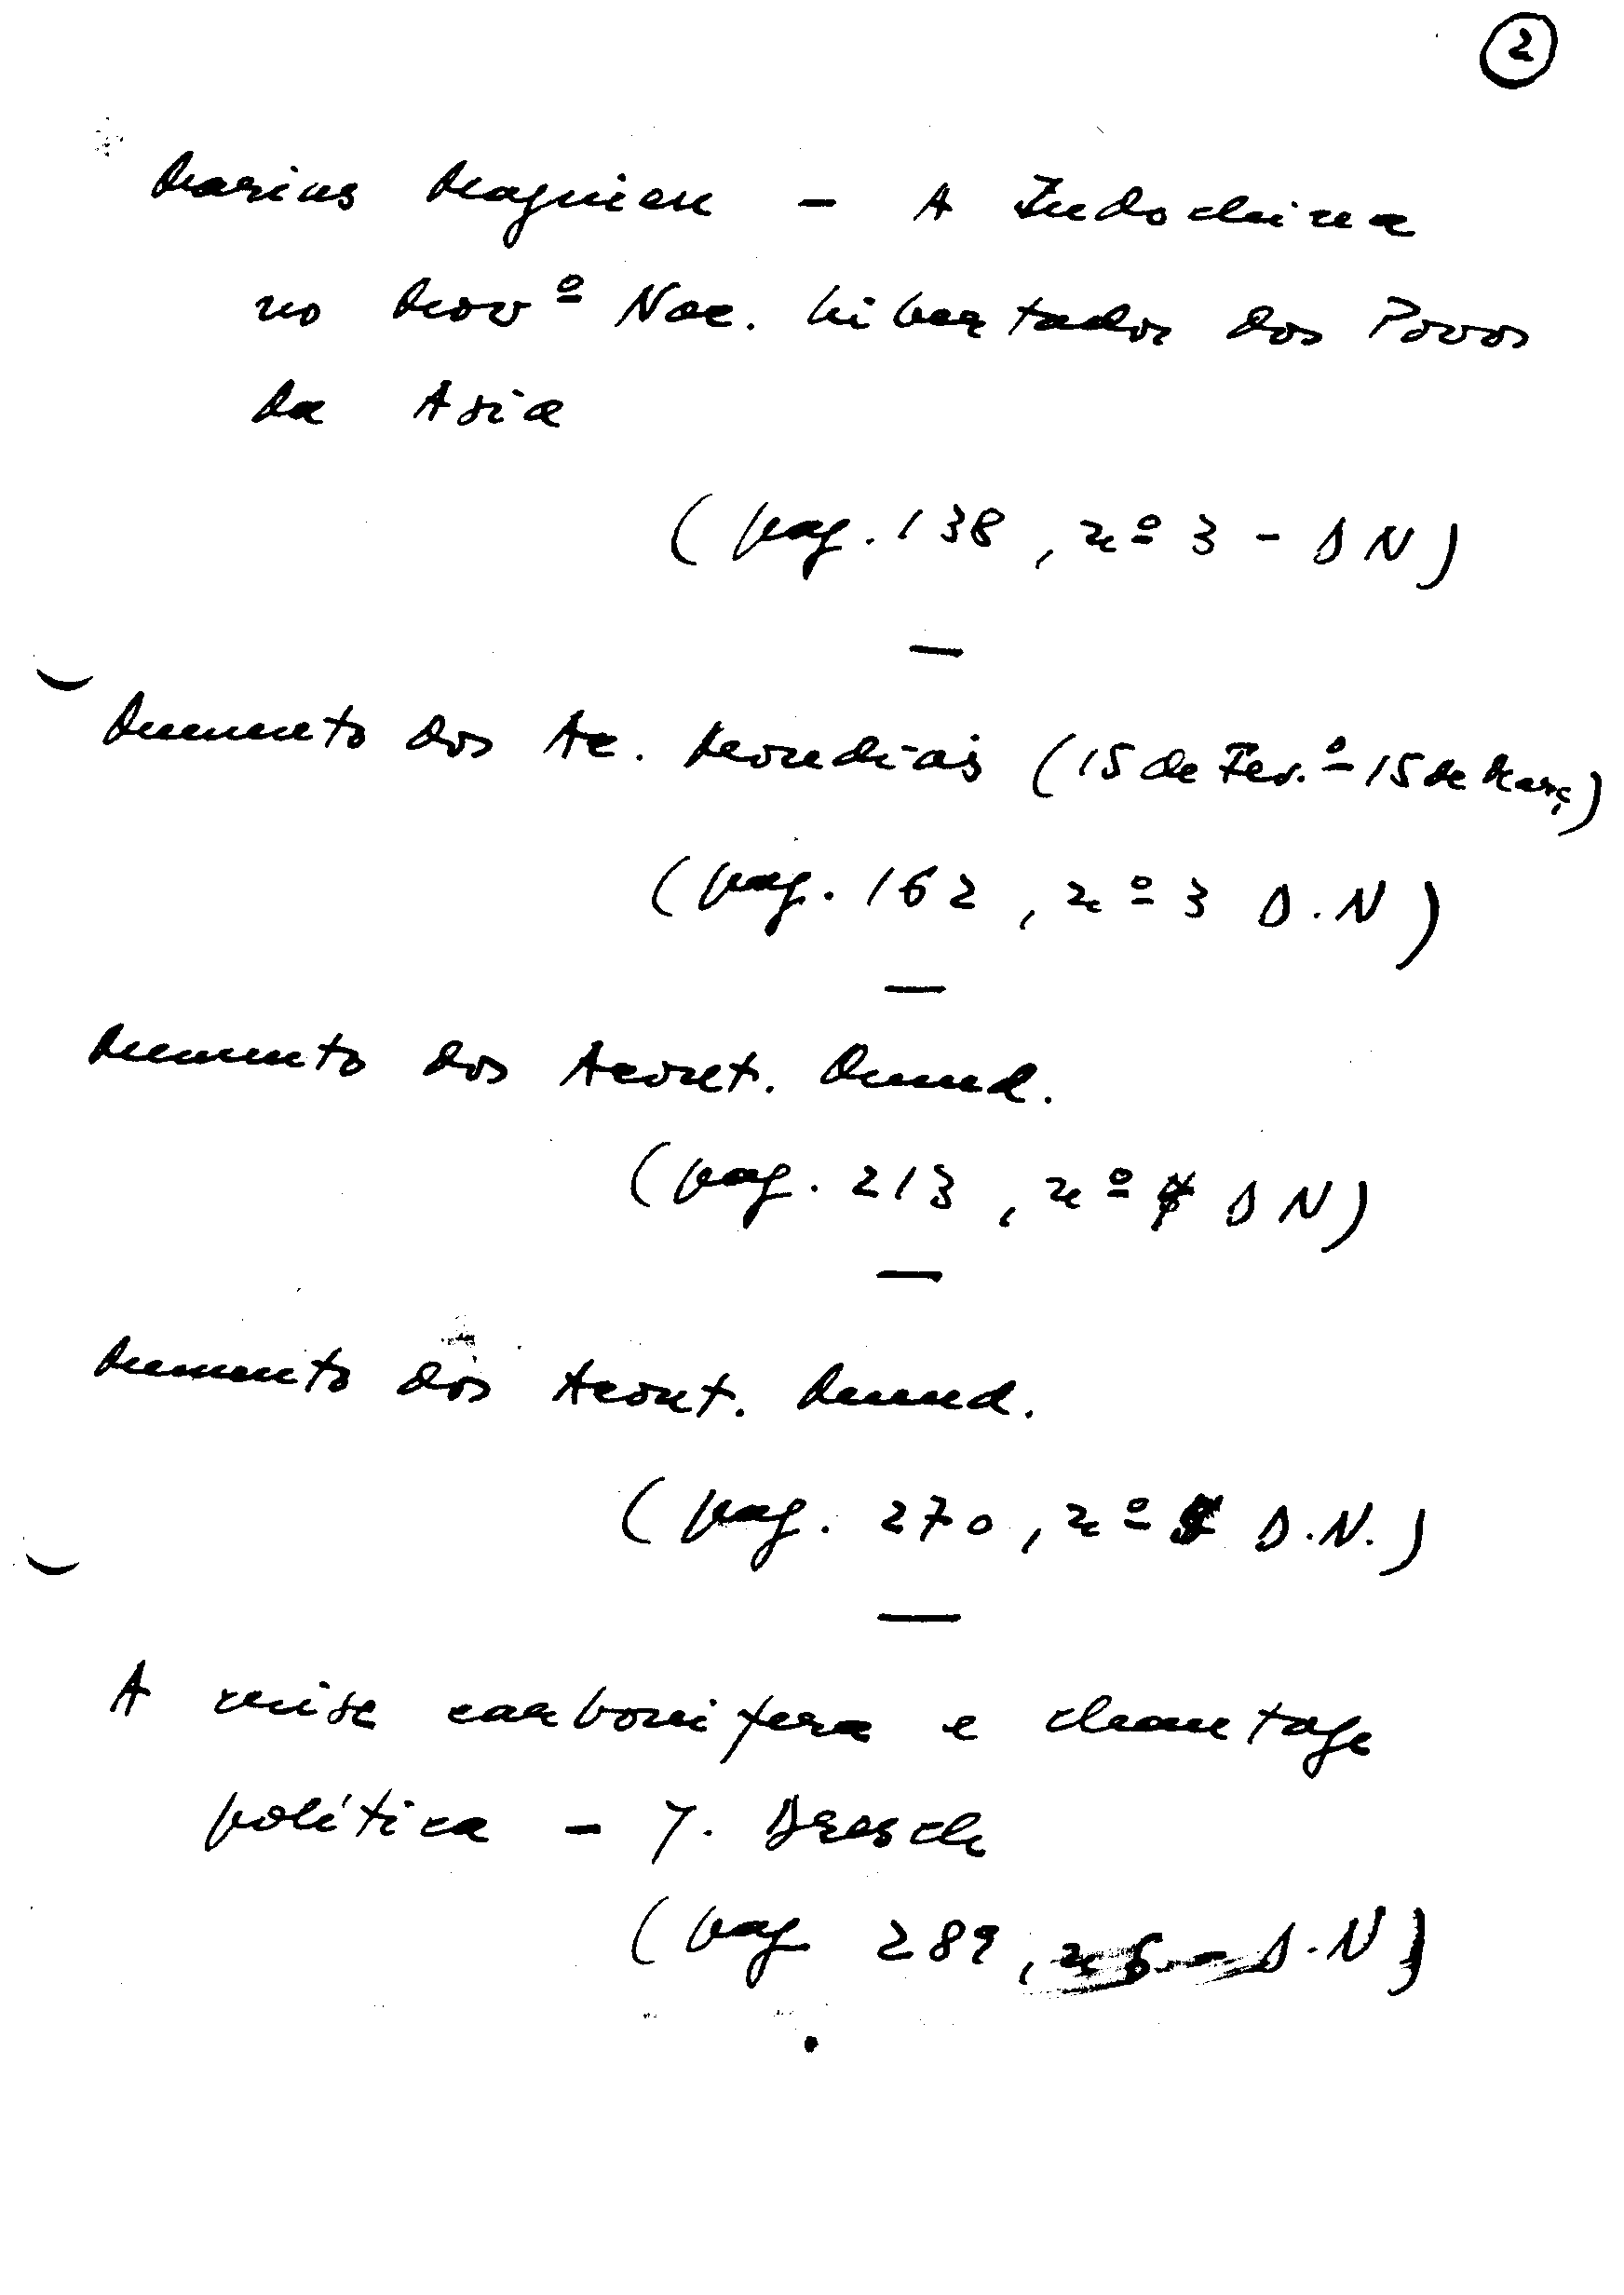 2
Marius Magnien - A Indochina
no Movº Nac. Libertador dos Povos
da Asia
(pag. 138, nº 3 - D N)
Memento dos Ac. Mondiais (15 de Fev.º - 15 de Març)
(pag. 162, nº 3 D.N)
Memento dos Acont. Mund.
(pag. 213, nº 4 D N)
Memento dos Acont. Mund.
(pag. 270, nº D.N.)
A crise carbonifera e chantage
política - J. Dresch
(pag 289, n 6 - D.N)